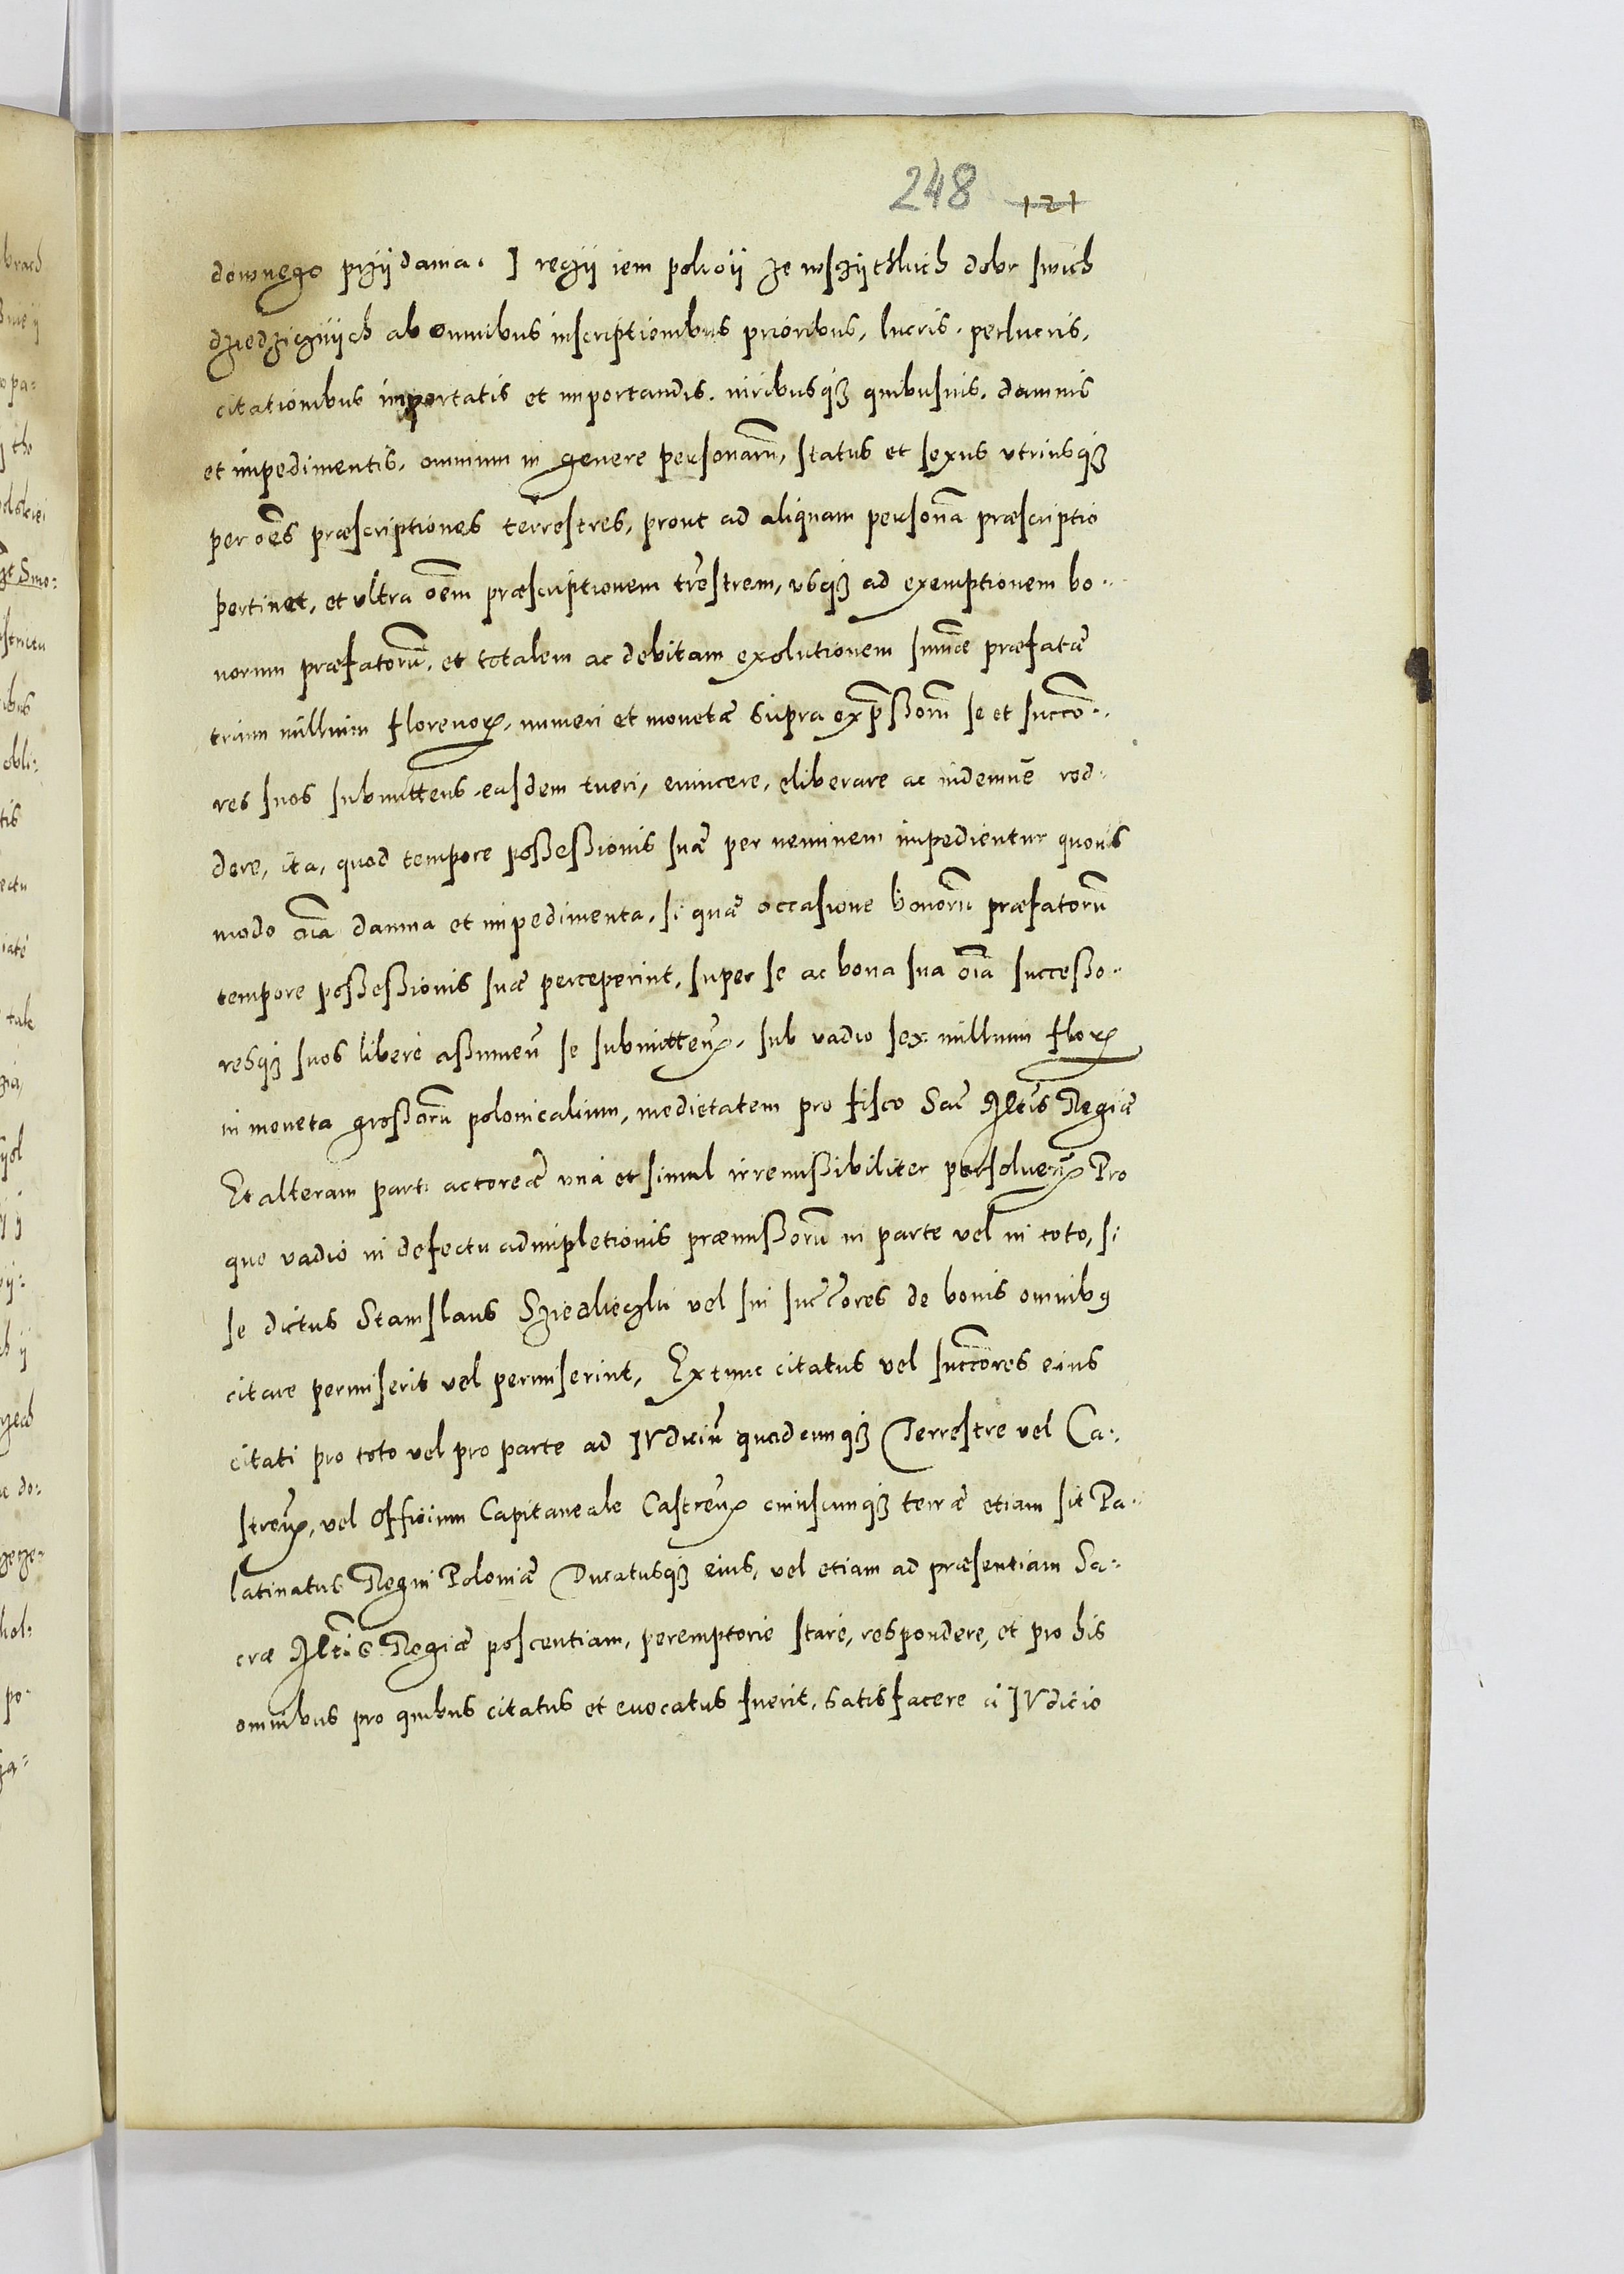 248 121
downego przÿdania. I reczÿ iem pokoÿ ze wszÿthkich dobr swich
dziedzicznÿch ab omnibus inscriptionibus prioribus, lucris, perlucris,
citationibus importatis et importandis, iuribusqꝫ quibusuis, damnis
et impedimentis, omnium in genere personarũ, status et sexus vtriusqꝫ
per oẽs præscriptiones terrestres, prout ad aliquam personã præscriptio
pertinet, et vltra oẽm præscriptionem trẽstrem, vsqꝫ ad exemptionem bo-
norum præfatorũ, et totalem ac debitam exolutionem sum̃æ præfatæ
trium millium florenoꝝ, numeri et monetæ supra exp̃ssorũ se et succo-
res suos submittens easdem tueri, euincere, eliberare ac indemnẽ red-
dere, ita, quod tempore possessionis suæ per neminem impedientur quouis
modo oĩa damna et impedimenta, si quæ occasione bonorũ præfatorũ
tempore possessionis suæ perceperint, super se ac bona sua oĩa successo-
resqꝫ suos liberè assumeñ se submitteñ, sub vadio sex millium floꝝ
in moneta grossorũ polonicalium, medietatem pro fisco Sac̃ Mt̃is Regiæ
Et alteram parti actoreæ vnà et simul irremissibiliter persolueñ Pro
quo vadio in defectu adimpletionis præmissorũ in parte vel in toto, si
se dictus Stanislaus Sziedlieczki vel sui succ̃ores de bonis omnibꝰ
citare permiserit vel permiserint, Extunc citatus vel succ̃ores eius
citati pro toto vel pro parte ad Iudiciũ quodcunqꝫ Terrestre vel Ca-
streñ, vel Officium Capitaneale Castreñ cuiuscunqꝫ terræ etiam sit Pa-
latinatus Regni Poloniæ Ducatusqꝫ eius, vel etiam ad præsentiam Sa-
cræ Mt̃is Regiæ poscentiam, peremptorie stare, respondere, et pro his
omnibus pro quibus citatus et euocatus fuerit, satisfacere à Iudicio